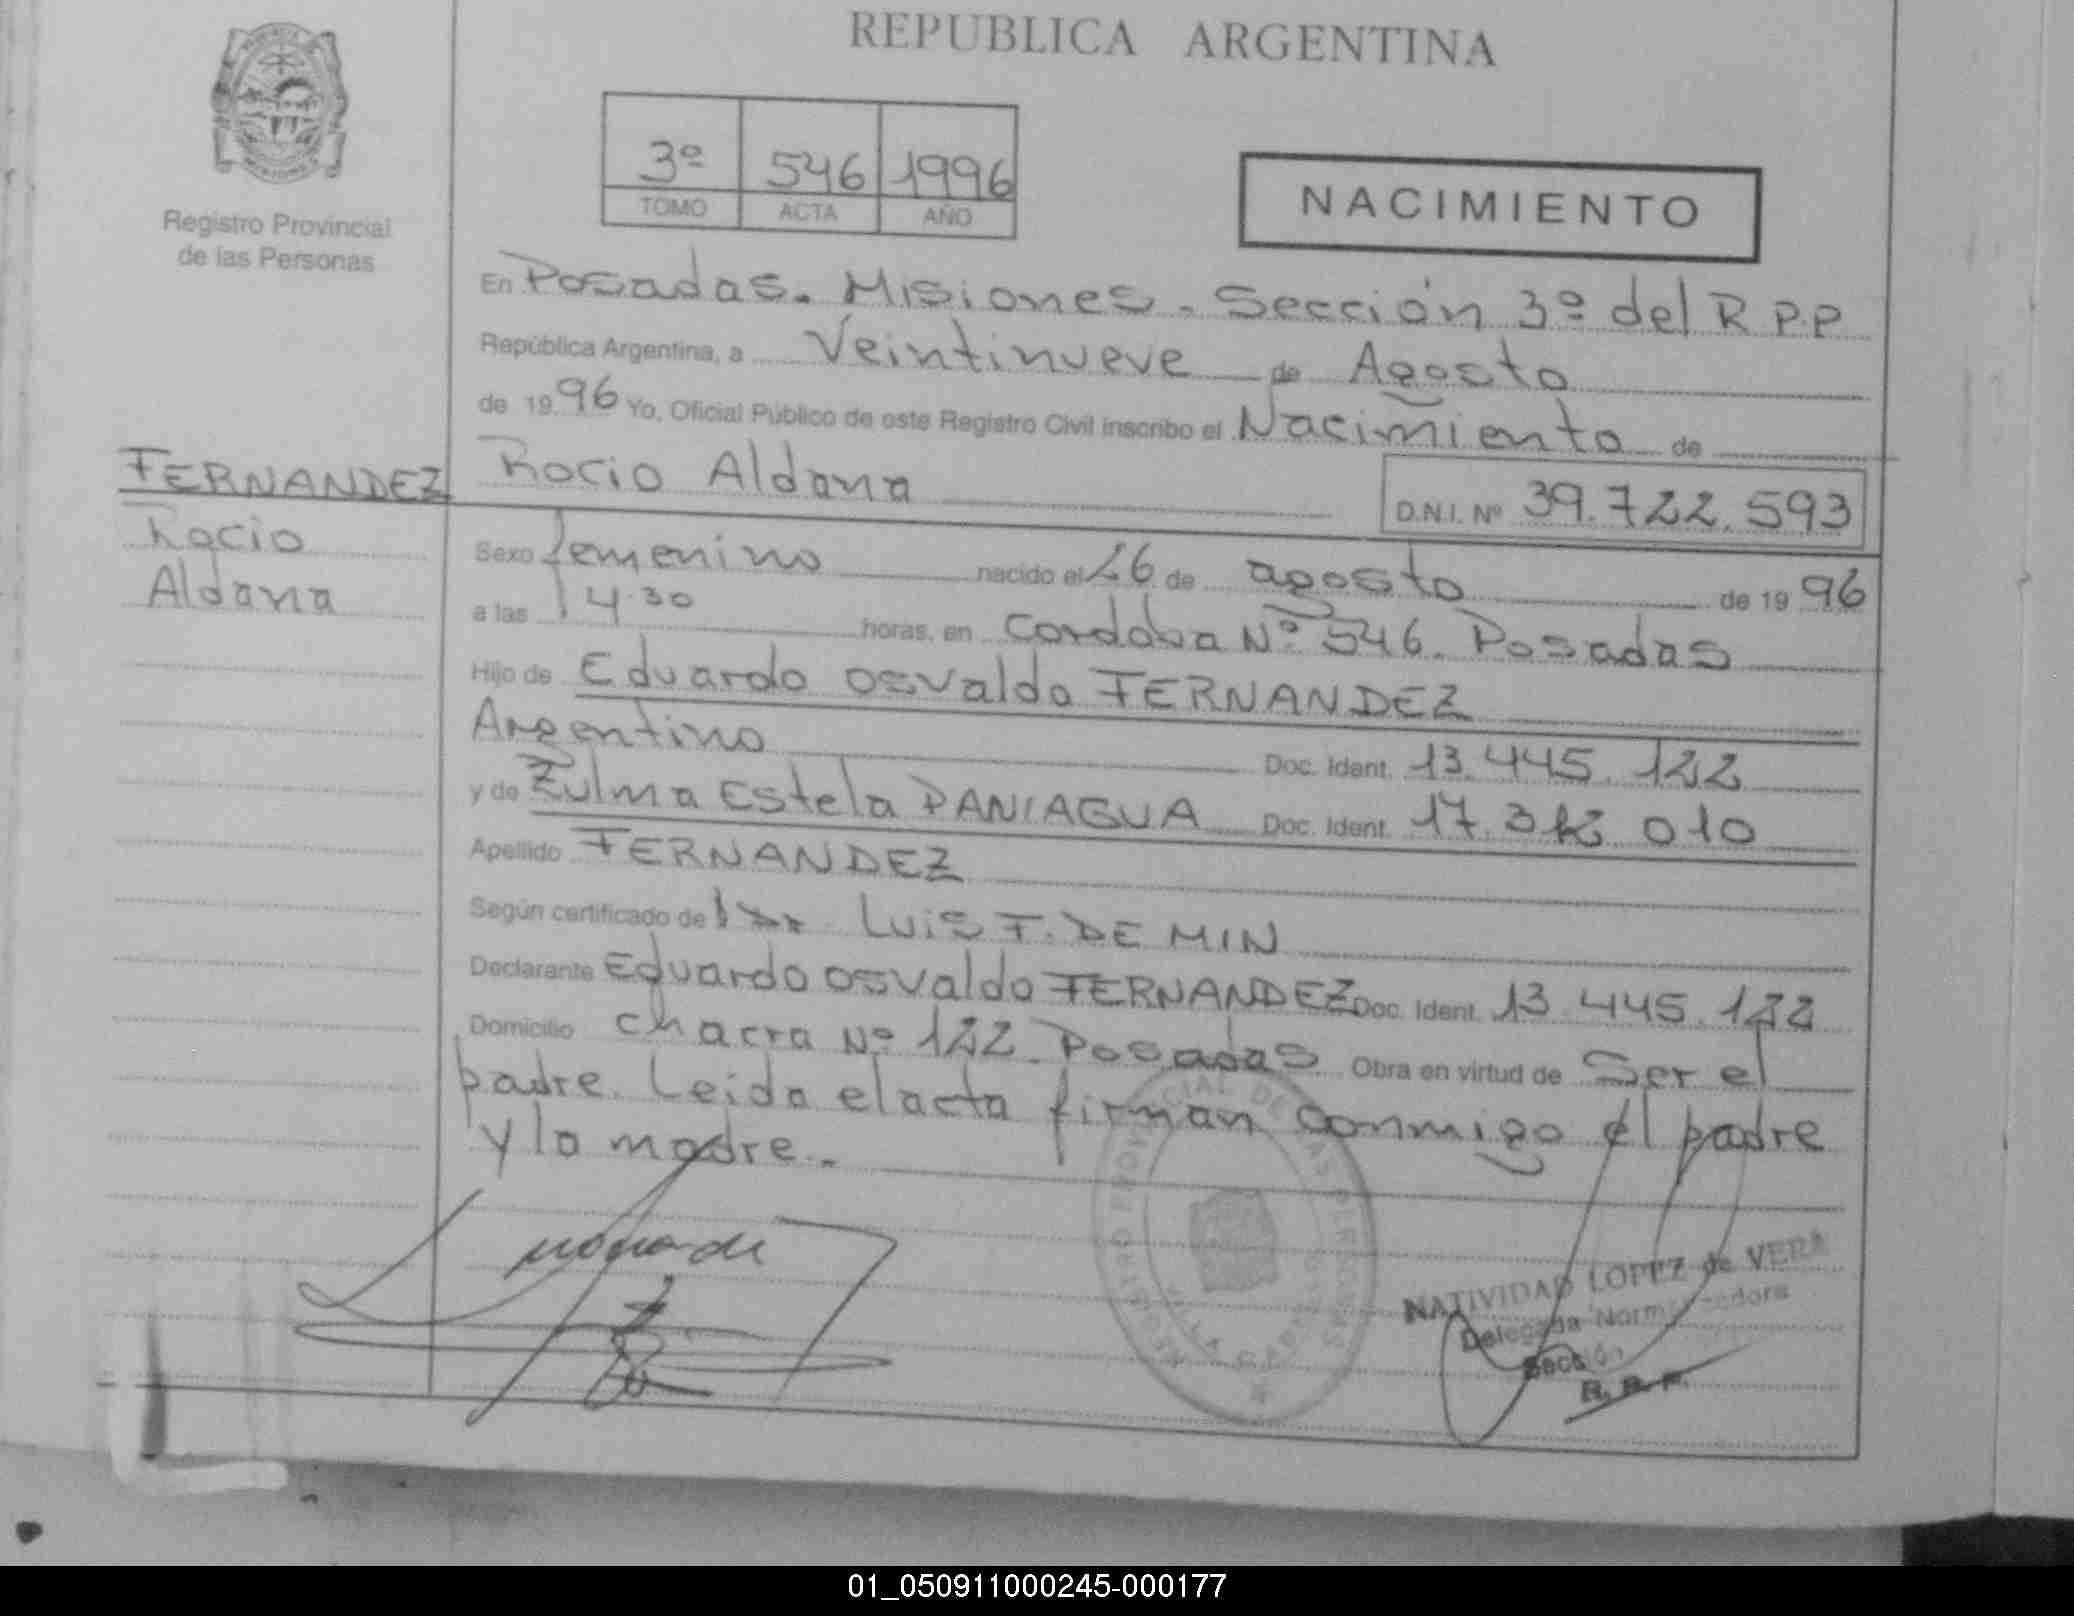 REPUBLICA ARGENTINA
3º 546 1996
TOMO ACTA AÑO
NACIMIENTO
Registro Provincial
de las Personas
En Posadas. Misiones. Sección 3º del R.P.P
República Argentina, a Veintinueve de Agosto
de 1996 Yo, Oficial Público de este Registro Civil inscribo el Nacimiento de
FERNANDEZ Rocio Aldana D.N.I. Nº 39.722.593
Rocio
Aldana
Sexo femenino nacido el 26 de agosto de 1996
a las 14.30 horas, en Cordoba Nº 546. Posadas
Hijo de Eduardo Osvaldo FERNANDEZ
Argentino Doc. Ident. 13.445.122
y de Zulma Estela PANIAGUA Doc. Ident. 17.3 010
Apellido FERNANDEZ
Según certificado de Luis F. DE MIN
Declarante Eduardo Osvaldo FERNANDEZ Doc. Ident. 13.445.122
Domicilio Chacra Nº 122. Posadas Obra en virtud de Ser el
padre. Leida el acta firman conmigo el padre
y la madre.
REGISTRO PROVINCIAL DE LAS PERSONAS
VILLA CABELLO
NATIVIDAD LOPEZ de VERA
Delegada Normalizadora
Sección
R. P. P.
01_050911000245-000177